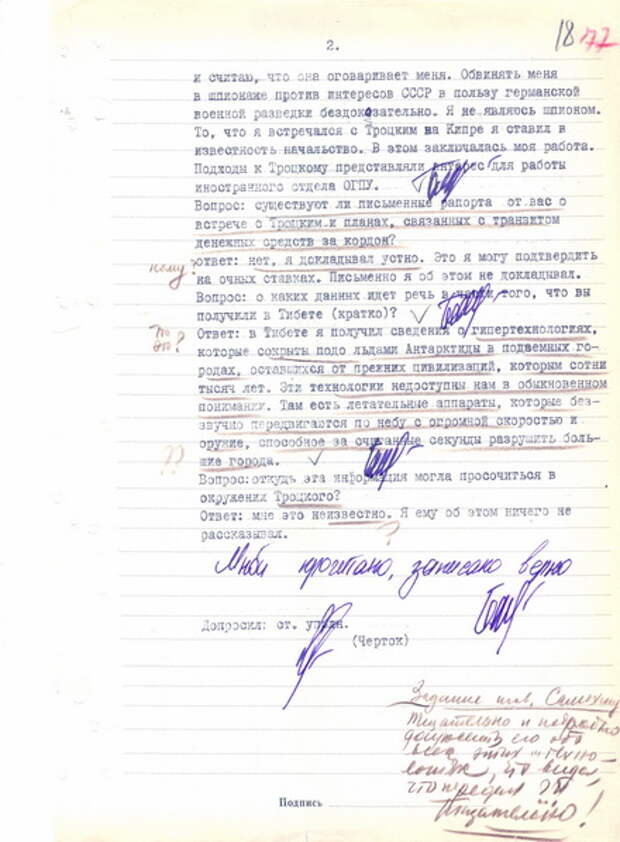 2.
18 77
и считаю, что она оговаривает меня. Обвинять меня
в шпионаже против интересов СССР в пользу германской
военной разведки бездоказательно. Я не являюсь шпионом.
То, что я встречался с Троцким на Кипре я ставил в
известность начальство. В этом заключалась моя работа.
Подходы к Троцкому представляли интерес для работы
иностранного отдела ОГПУ.
Вопрос: существуют ли письменные рапорта от вас о
встрече с Троцким и планах, связанных с транзитом
денежных средств за кордон?
кому?
ответ: нет, я докладывал устно. Это я могу подтвердить
на очных ставках. Письменно я об этом не докладывал.
Вопрос: о каких данных идет речь в части того, что вы
получили в Тибете (кратко)?
Ответ: в Тибете я получил сведения о гипертехнологиях,
которые сокрыты подо льдами Антарктиды в подземных го-
родах, оставшихся от прежних цивилизаций, которым сотни
тысяч лет. Эти технологии недоступны нам в обыкновенном
понимании. Там есть летательные аппараты, которые без-
звучно передвигаются по небу с огромной скоростью и
оружие, способное за считанные секунды разрушить боль-
??
шие города.
Вопрос:откудь эта информация могла просочиться в
окружения Троцкого?
Ответ: мне это неизвестно. Я ему об этом ничего не
?
рассказывал.
Мной прочитано, записано верно
Допросил: ст. уполн.
(Черток)
Задание тов.
тщательно и подробно
допросить его обо
всех этих "техно-
логиях", что видел,
что передал
Тщательно!
Подпись